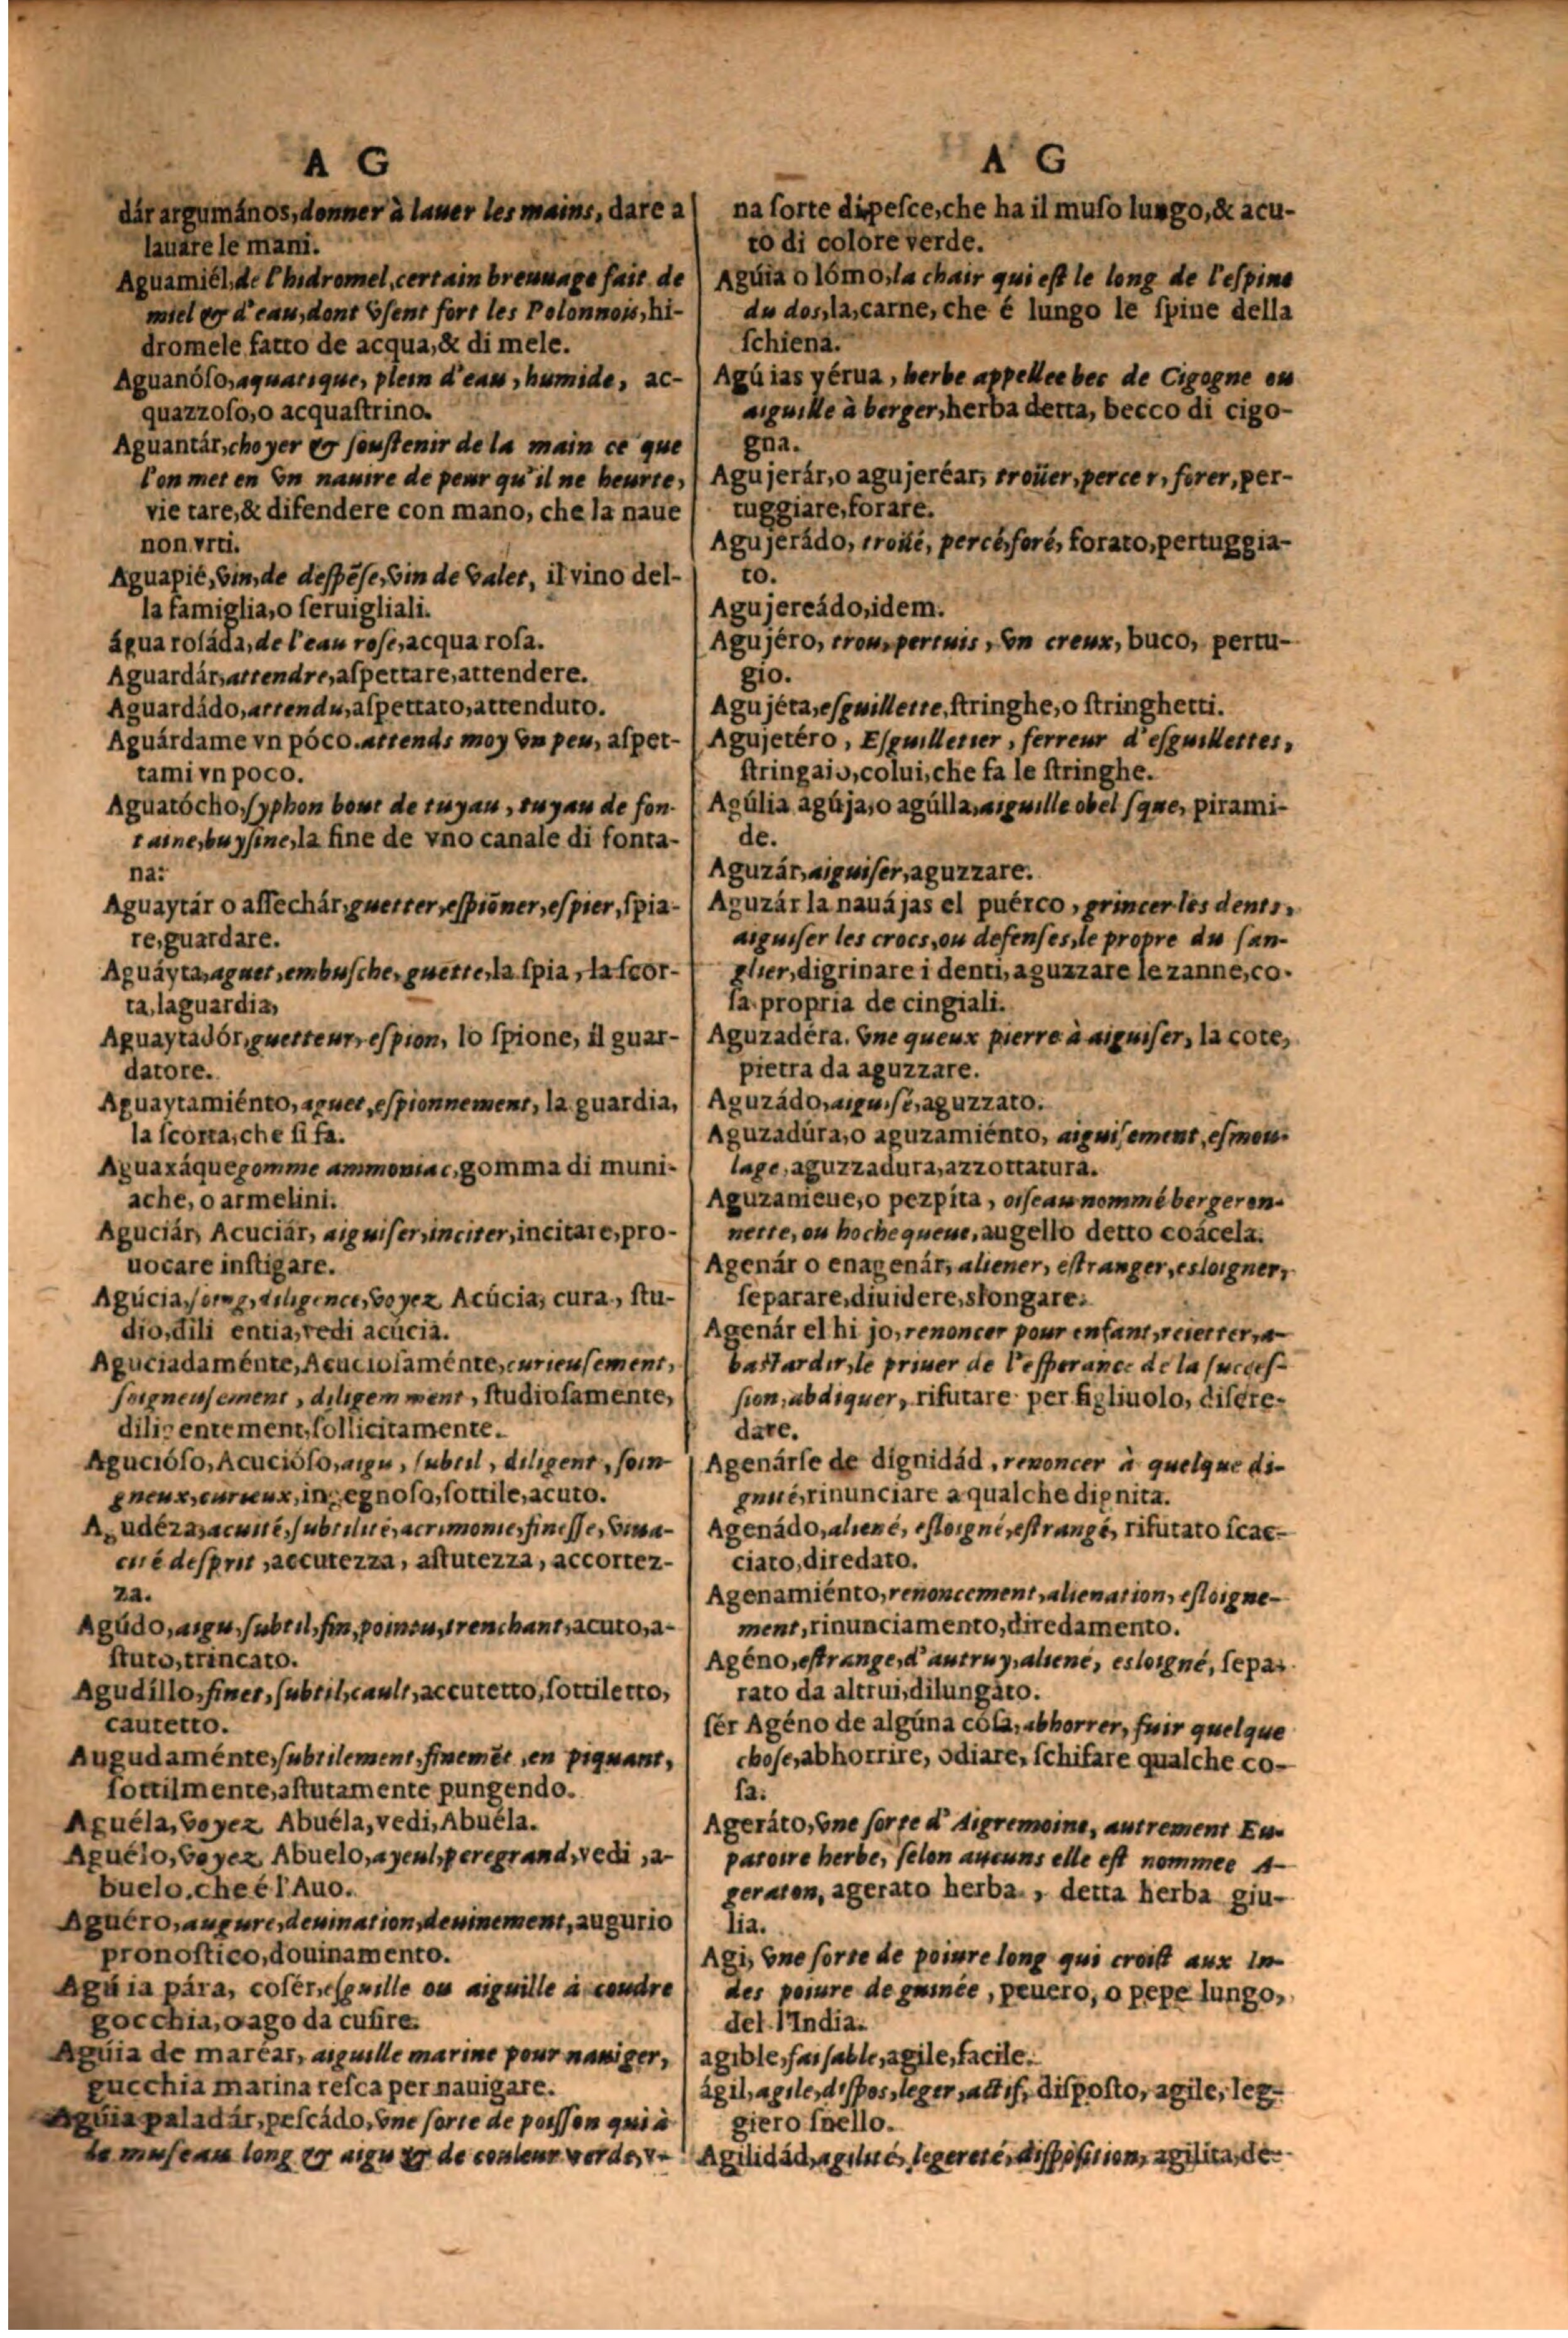 A G
dár argumános, donner à lauer les mains, dare a
lauare le mani.
Aguamiél, de l'hidromel, certain breuuage fait de
miel & d'eau, dont vsent fort les Polonnois, hi-
dromele fatto de acqua, & di mele.
Aguanóſo, aquatique, plein d'eau, humide, ac-
quazzoſo, o acquaſtrino.
Aguantár, choyer & ſouſtenir de la main ce que
l'on met en vn nauire de peur qu'il ne heurte,
vie tare, & difendere con mano, che la naue
non vrti.
Aguapié, vin, de deſpẽſe, vin de valet, il vino del-
la famiglia, o ſeruigliali.
água roſáda, de l'eau roſe, acqua roſa.
Aguardár, attendre, aſpettare, attendere.
Aguardádo, attendu, aſpettato, attenduto.
Aguárdame vn póco. attends moy vn peu, aſpet-
tami vn poco.
Aguatócho, ſyphon bout de tuyau, tuyau de fon-
taine, buyſine, la fine de vno canale di fonta-
na:
Aguaytár o aſſechár, guetter, eſpiõner, eſpier, ſpia-
re, guardare.
Aguáyta, aguet, embuſche, guette, la ſpia, la ſcor-
ta, laguardia,
Aguaytadór, guetteur, eſpion, lo ſpione, il guar-
datore.
Aguaytamiénto, aguet, eſpionnement, la guardia,
la ſcorta, che ſi fa.
Aguaxáque gomme ammoniac, gomma di muni-
ache, o armelini.
Aguciár, Acuciár, aiguiſer, inciter, incitare, pro-
uocare inſtigare.
Agúcia, ſoing, diligence, voyez Acúcia, cura, ſtu-
dio, dili entia, vedi acúcia.
Aguciadaménte, Acucioſaménte, curieuſement,
ſoigneuſement, diligemment, ſtudioſamente,
diligentement, ſollicitamente.
Agucióſo, Acucióſo, aigu, ſubtil, diligent, ſoin-
gneux, curieux, ingegnoſo, ſottile, acuto.
Agudéza, acuité, ſubtilité, acrimonie, fineſſe, viua-
cité deſprit, accutezza, aſtutezza, accortez-
za.
Agúdo, aigu, ſubtil, fin, pointu, trenchant, acuto, a-
ſtuto, trincato.
Agudíllo, finet, ſubtil, cault, accutetto, ſottiletto,
cautetto.
Augudaménte, ſubtilement, finemẽt, en piquant,
ſottilmente, aſtutamente pungendo.
Aguéla, voyez Abuéla, vedi, Abuéla.
Aguélo, voyez Abuelo, ayeul, peregrand, vedi, a-
buelo, che é l'Auo.
Aguéro, augure, deuination, deuinement, augurio
pronoſtico, douinamento.
Agú ia pára, coſér, eſguille ou aiguille à coudre
gocchia, o ago da cuſire.
Agúia de maréar, aiguille marine pour nauiger,
gucchia marina reſca per nauigare.
Agúia paladár, peſcádo, vne ſorte de poiſſon qui à
le muſeau long & aigu & de couleur verde, v-
A G
na ſorte di peſce, che ha il muſo lungo, & acu-
to di colore verde.
Agúia o lómo, la chair qui eſt le long de l'eſpine
du dos, la, carne, che é lungo le ſpine della
ſchiena.
Agú ias yérua, herbe appellee bec de Cigogne ou
aiguille à berger, herba detta, becco di cigo-
gna.
Agujerár, o agujeréar, troüer, percer, forer, per-
tuggiare, forare.
Agujerádo, troüé, percé, foré, forato, pertuggia-
to.
Agujereádo, idem.
Agujéro, trou, pertuis, vn creux, buco, pertu-
gio.
Agujéta, eſguillette, ſtringhe, o ſtringhetti.
Agujetéro, Eſguilletier, ferreur d'eſguillettes,
ſtringaio, colui, che fa le ſtringhe.
Agúlia agúja, o agúlla, aiguille obel ſque, pirami-
de.
Aguzár, aiguiſer, aguzzare.
Aguzár la nauájas el puérco, grincer les dents,
aiguiſer les crocs, ou defenſes, le propre du ſan-
glier, digrinare i denti, aguzzare le zanne, co-
ſa propria de cingiali.
Aguzadéra. vne queux pierre à aiguiſer, la cote,
pietra da aguzzare.
Aguzádo, aiguiſé, aguzzato.
Aguzadúra, o aguzamiénto, aiguiſement, eſmou-
lage, aguzzadura, azzottatura.
Aguzanieue, o pezpíta, oiſeau nommé bergeron-
nette, ou hochequeue, augello detto coácela.
Agenár o enagenár, aliener, eſtranger, esloigner,
ſeparare, diuidere, slongare.
Agenár el hi jo, renoncer pour enfant, reietter, a-
baſtardir, le priuer de l'eſperance de la ſucceſ-
ſion, abdiquer, rifutare per figliuolo, diſere-
dare.
Agenárſe de dignidád, renoncer à quelque di-
gnité, rinunciare a qualche dignita.
Agenádo, aliené, eſloigné, eſtrangé, rifutato ſcac-
ciato, diredato.
Agenamiénto, renoncement, alienation, eſloigne-
ment, rinunciamento, diredamento.
Agéno, eſtrange, d'autruy, aliené, esloigné, ſepa-
rato da altrui, dilungato.
ſér Agéno de algúna cóſa, abhorrer, fuir quelque
choſe, abhorrire, odiare, ſchifare qualche co-
ſa.
Ageráto, vne ſorte d'Aigremoine, autrement Eu-
patoire herbe, ſelon aucuns elle eſt nommee A-
geraton, agerato herba, detta herba giu-
lia.
Agi, vne ſorte de poiure long qui croiſt aux In-
des poiure de guinée, peuero, o pepe lungo,
del l'India.
agible, faiſable, agile, facile.
ágil, agile, diſpos, leger, actif, diſpoſto, agile, leg-
giero ſnello.
Agilidád, agilité, legereté, diſpoſition, agilita, de-